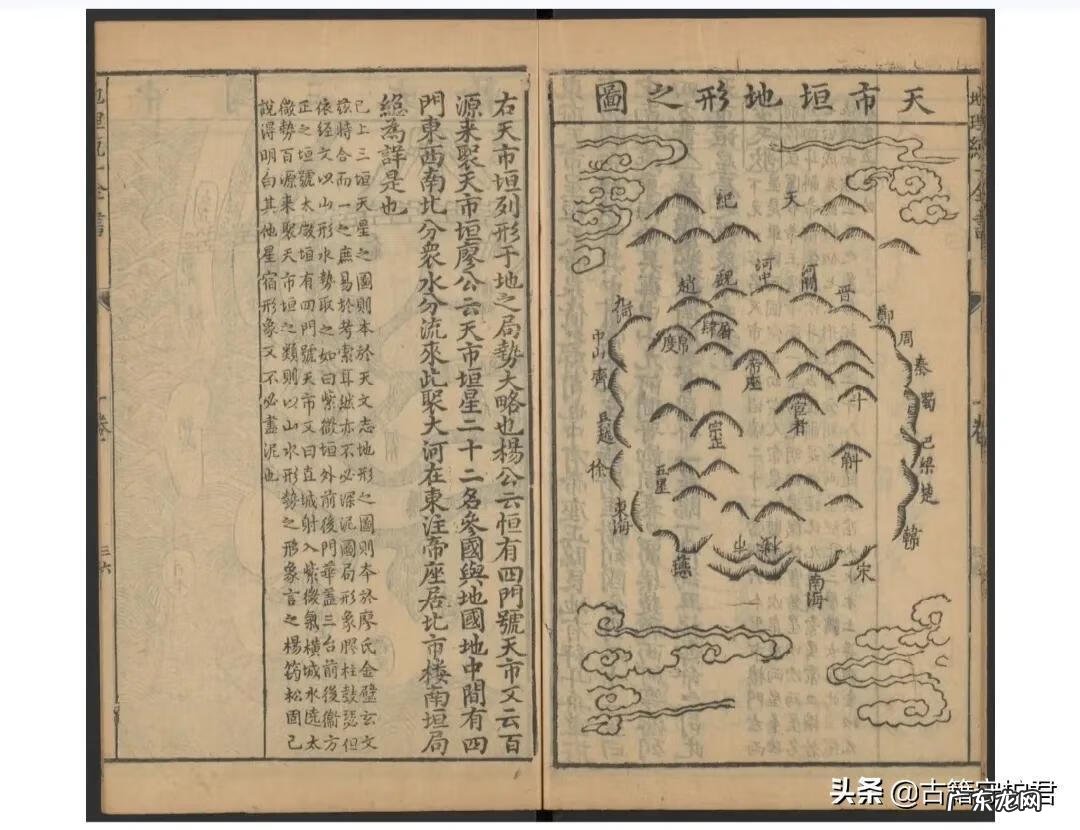 天市垣地形之圖
天紀
鄭
晋
河間
河中
魏
趙
九河
中山
齊
吳越
徐
東海
燕
南海
宋
韓
楚
梁
巴
蜀
秦
周
屠肆
帛度
帝座
宦者
斗
斛
宗正
五星
右天市垣列形于地之局勢大略也楊公云恒有四門號天市又云百
源来聚天市垣廖公云天市垣星二十二名參國與地國地中間有四
門東西南北分衆水分流來此聚大河在東注帝座居北市楼南垣局
總為詳是也
已上三垣天星之圖則本於天文志地形之圖則夲於廖氏金璧玄文
茲特合而一之庶易於考索耳然亦不必深泥圖局形象膠柱鼓瑟但
依經文以山形水勢取之如曰紫微垣外前後門華盖三台前後衛方
正之垣號太微垣有四門號天市又曰直城射入紫微氣橫城水遶太
微勢百源来聚天市垣之類則以山水形勢之形象言之楊筠松固已
說得明白其他星宿形象又不必盡泥也
三六
头条 @古籍守护君
广东龙网